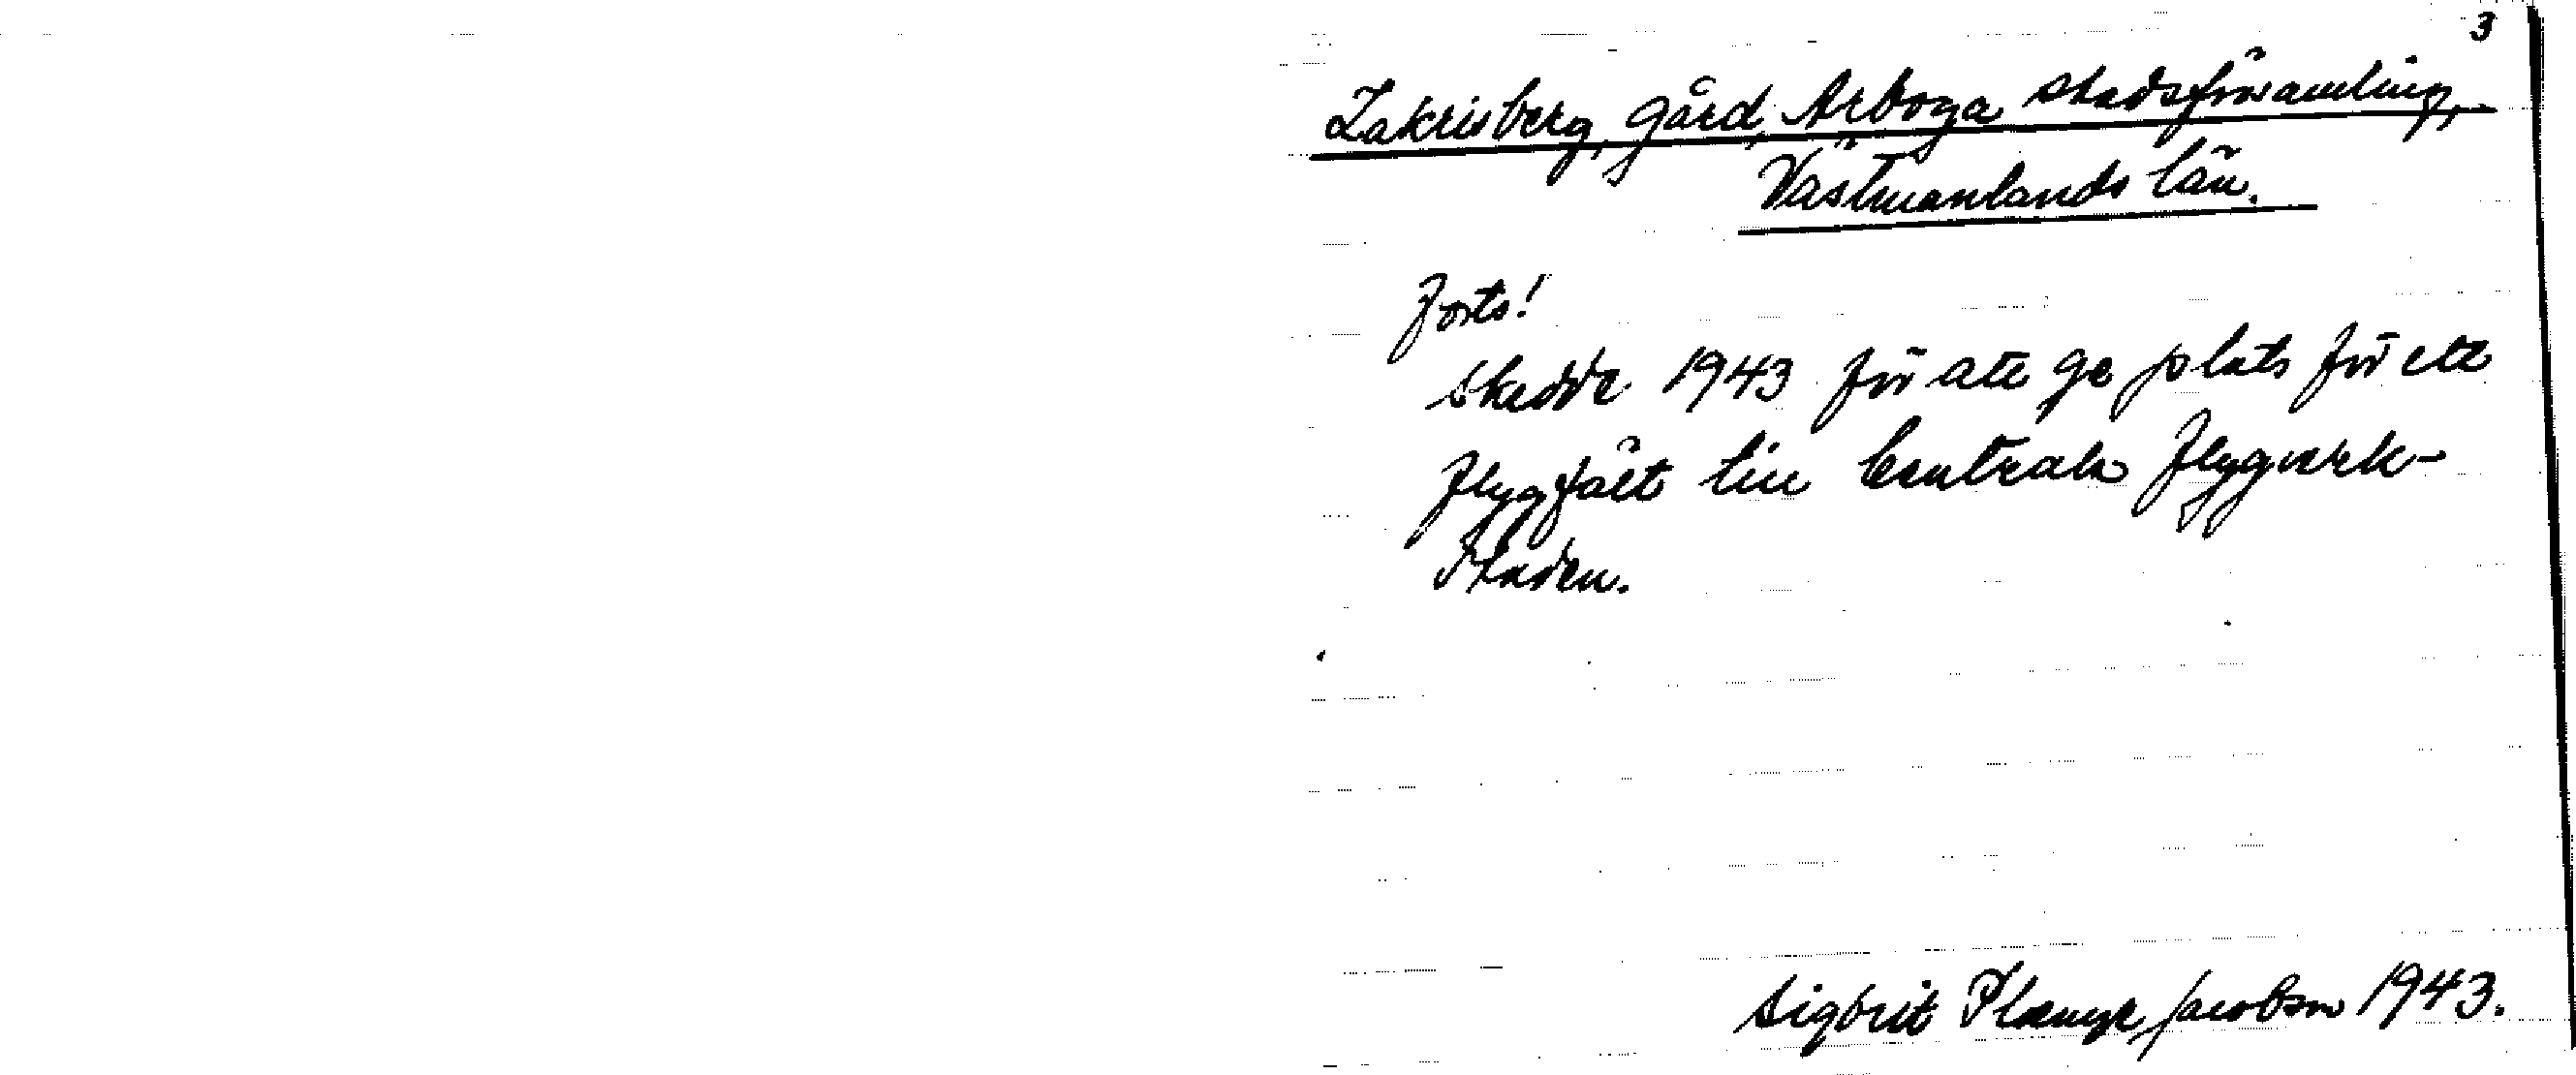 3
Zakrisberg, gård, Arboga stadsförsamling,
Västmanlands län.
Forts!
skedde 1943 för att ge plats för ett
flygfält till Centrala flygverk-
staden.
Sigbrit Plænge Jacobson 1943.